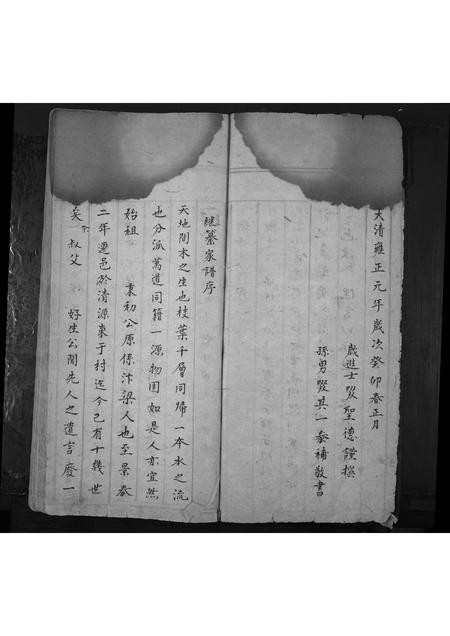 大清雍正元年歲次癸卯春正月
歲進士段聖德謹撰
孫男段其一參補敬書
繼纂家譜序
天地間木之生也枝葉千層同歸一本水之流
也分派萬道同籍一源物固如是人亦宜然
始祖 初公原係汴梁人也至景泰
二年遷邑於清源東于村迄今已有十幾世
矣 叔父 好生公聞先人之遺言廢一